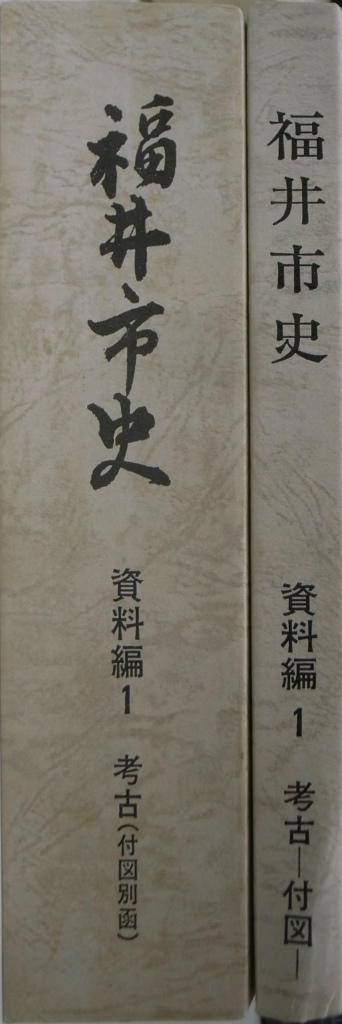 福井市史
資料編1 考古(付図別函)
福井市史
資料編1 考古―付図―